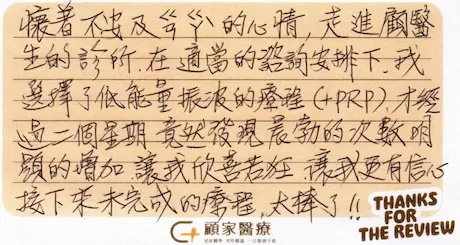 懷著不安及ㄍㄍㄒㄒ的心情,走進顧醫
生的診所.在適當的諮詢安排下.我
選擇了低能量振波的療程(+PRP).才經
過二個星期竟然發現晨勃的次數明
顯的增加 讓我欣喜若狂 讓我更有信心
接下來未完成的療程,太棒了!!
THANKS
FOR
THE REVIEW
顧家醫療